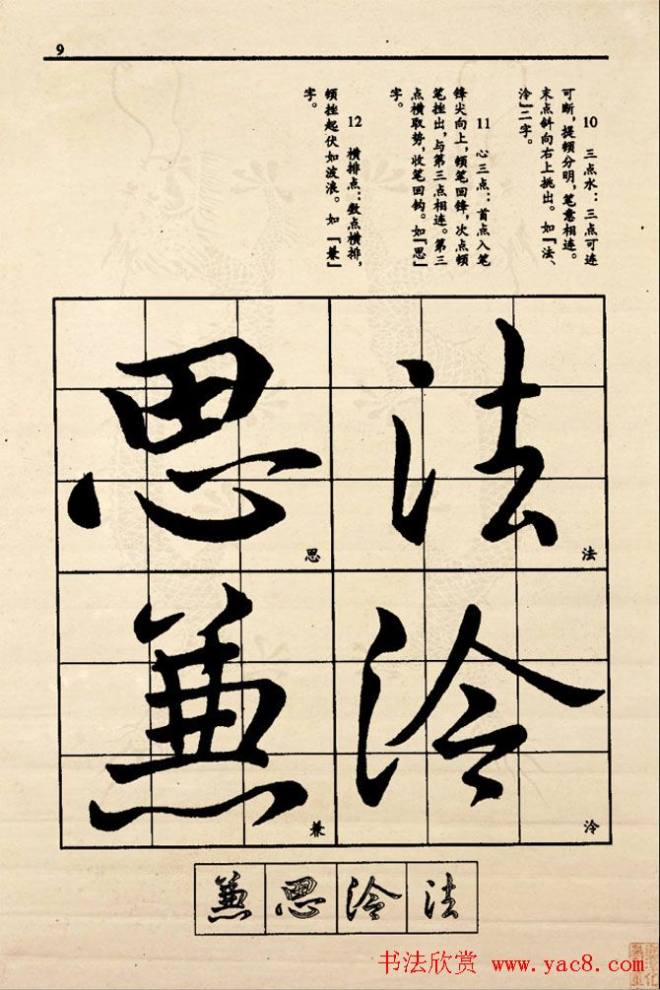 9
10 三点水：三点可连
可断，提顿分明，笔意相连。
末点斜向右上挑出。如『法、
泠』二字。
11 心三点：首点入笔
锋尖向上，顿笔回锋，次点顿
笔挫出，与第三点相连。第三
点横取势，收笔回钩。如『思』
字。
12 横排点：数点横排，
顿挫起伏如波浪。如『兼』
字。
法
法
泠
泠
思
思
兼
兼
法泠思兼
书法欣赏 www.yac8.com